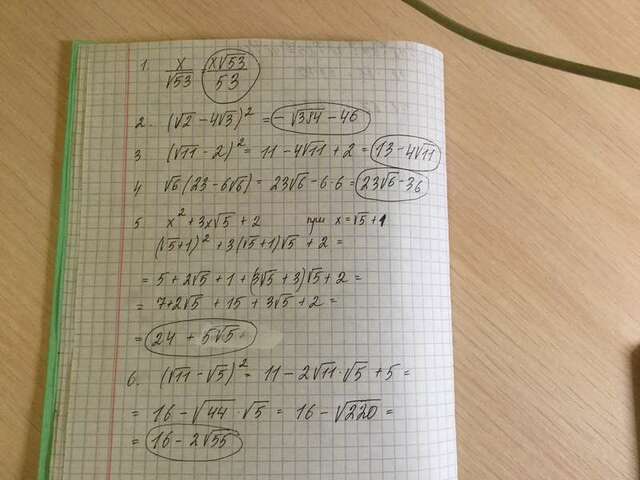 1. x/√53 x√53/53
2. (√2 - 4√3)² = -√384 - 46
3 (√11 - 2)² = 11 - 4√11 + 2 = 13 - 4√11
4 √6 (23 - 6√6) = 23√6 - 6·6 = 23√6 - 36
5 x² + 3x√5 + 2 при x = √5 + 1
(√5+1)² + 3(√5+1)√5 + 2 =
= 5 + 2√5 + 1 + (3√5 + 3)√5 + 2 =
= 7 + 2√5 + 15 + 3√5 + 2 =
= 24 + 5√5
6. (√11 - √5)² = 11 - 2√11·√5 + 5 =
= 16 - √44·√5 = 16 - √220 =
= 16 - 2√55